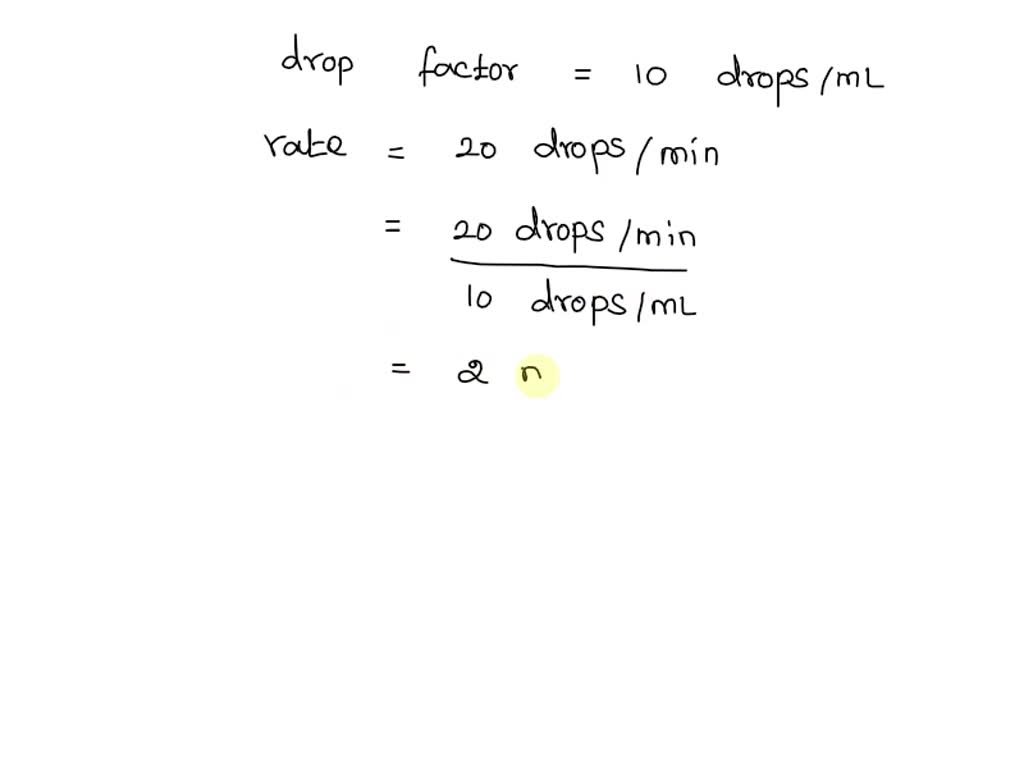 drop factor = 10 drops/mL
rate = 20 drops/min
= 20 drops/min
10 drops/mL
= 2 n